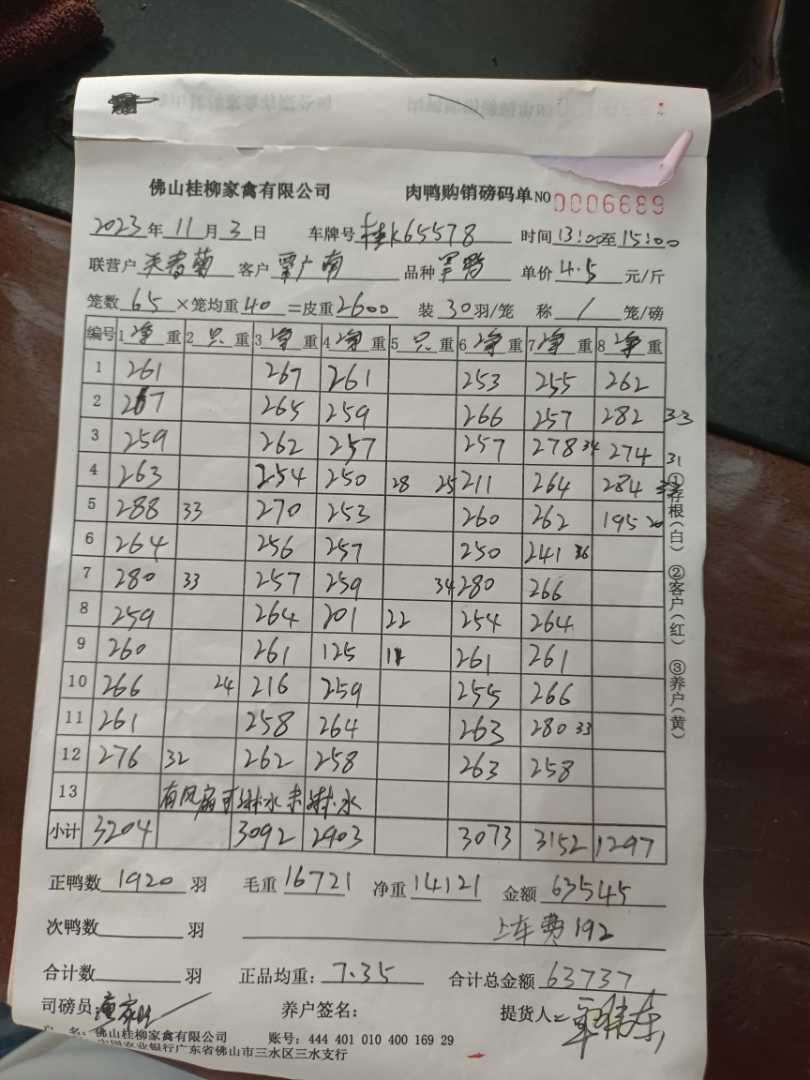 佛山桂柳家禽有限公司 肉鸭购销磅码单NO 0006689
2023年11月3日 车牌号 桂K65578 时间13:00至15:00
联营户 客户 覃广南 品种 单价4.5元/斤
笼数65×笼均重40=皮重2600 装30羽/笼 称1笼/磅
编号 1净重 2只重 3净重 4净重 5只重 6净重 7净重 8净重
1 261 267 261 253 255 262
2 267 265 259 266 257 282 33
3 259 262 257 257 278 34 274 31
4 263 254 250 28 25 211 264 284
5 288 33 270 253 260 262 195 20
6 264 256 257 250 241 36
7 280 33 257 259 34 280 266
8 259 264 201 22 254 264
9 260 261 125 261 261
10 266 24 216 259 255 266
11 261 258 264 263 280 33
12 276 32 262 258 263 258
13
小计 3204 3092 2903 3073 3152 1297
正鸭数1920羽 毛重16721 净重14121 金额63545
次鸭数 羽 上车费192
合计数 羽 正品均重:7.35 合计总金额63737
司磅员: 养户签名: 提货人:
户 名:佛山桂柳家禽有限公司 账号:444 401 010 400 169 29
中国农业银行广东省佛山市三水区三水支行
①存根(白) ②客户(红) ③养户(黄)